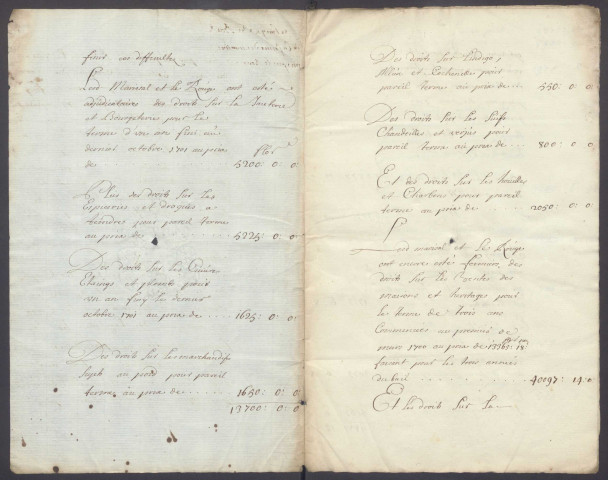 Led. Marival et le Rouge ont esté
adjudicataires des droits sur la
et Bourgeterie pour le
terme d'un an fini au
dernier octobre 1701 au prix
de 5200:0:0
Plus des droits sur les
Epiceries et drogues a
teindres pour pareil terme
au prix de 5225:0:0
Des droits sur les Cuivres
Etaings et plombs pour
un an finy le dernier
octobre 1701 au prix de 1625:0:0
Des droits sur les marchandises
Sujets au poid pour pareil
terme au prix de 1650:0:0
13700:0:0
Des droits sur
et pour
pareil terme au prix de 550:0:0
Des droits sur les Suifs
Chandeilles et pour
pareil terme au prix de 800:0:0
Et des droits sur les houilles
et Charbons pour pareil
terme au prix de 2050:0:0
Led. marival et le Rouge
ont encore esté fermiers des
droits sur les Ventes des
maisons et heritages pour
le terme de trois ans
Commencés au premier de
mars 1700 au prix de
faisant pour les trois années
du bail 40097:14:0
Et les droits sur la